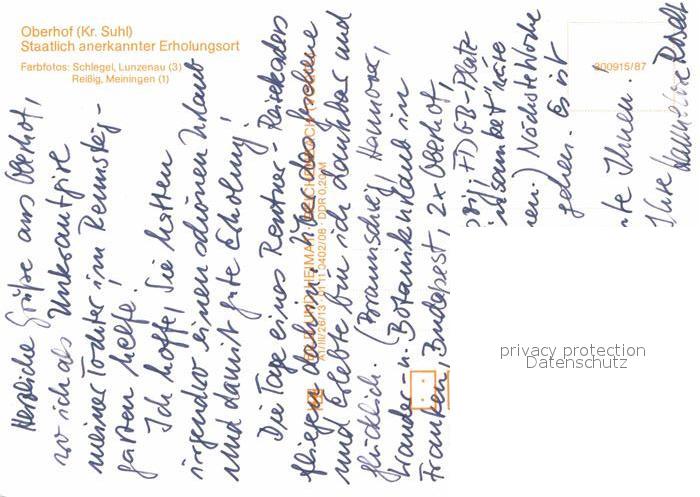 Oberhof (Kr. Suhl)
Staatlich anerkannter Erholungsort
Farbfotos: Schlegel, Lunzenau (3)
Reißig, Meiningen (1)
300915/87
Herzliche Grüße aus Oberhof,
wo ich als Unkrautfire
meiner Tochter im Rennsteig-
garten helfe!
Ich hoffe, Sie hatten
irgendwo einen schönen Urlaub
und damit gute Erholung!
Die Tage eines Rentner-Reisekaders
fliegen dahin. Über das Gesehene
und Erlebte bin ich dankbar und
glücklich. (Braunschweig, Hannover,
Wander- u. Botanik-Urlaub in
Franken, Budapest, 2x Oberhof,
FDGB-Platz
wäre
Nächste Woche
gehen. Es ist
Ihnen!
Ihre Hannelore
A1/III/26/13 01 11 0402/08 DDR 0,20 M
privacy protection
Datenschutz